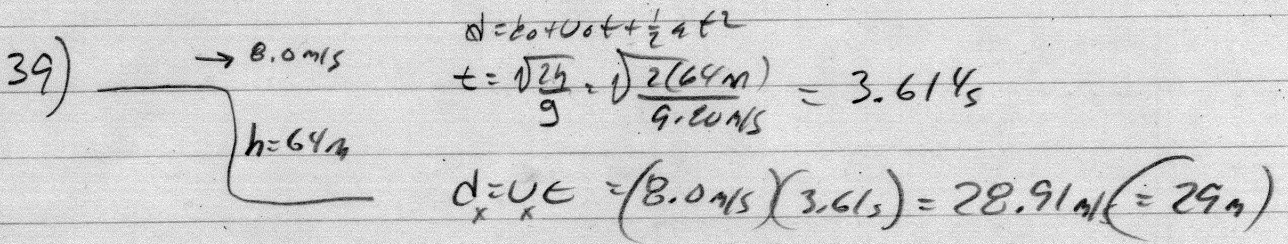 39) → 8.0 m/s
h=64m
d = to + vot + 1/2 at2
t = √2h/g = √2(64m)/9.80 m/s = 3.614s
dx = vxt = (8.0 m/s)(3.61s) = 28.91 m/s (= 29m)